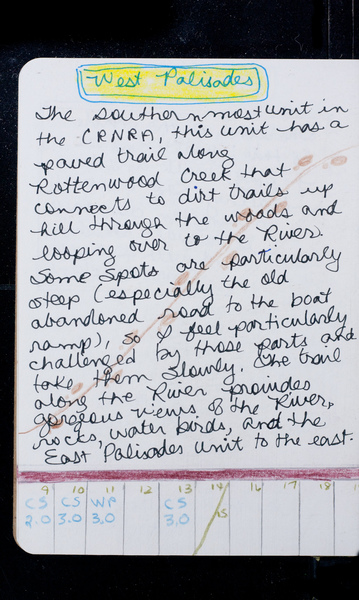 West Palisades
The southernmost unit in
the CRNRA, this unit has a
paved trail along
Rottenwood Creek that
connects to dirt trails up
hill through the woods and
looping over to the River.
Some spots are particularly
steep (especially the old
abandoned road to the boat
ramp), so I feel particularly
challenged by those parts and
take them slowly. The trail
along the River provides
gorgeous views of the River,
rocks, water birds, and the
East Palisades unit to the east.
9 10 11 12 13 14 16 17 18
CS CS WP CS 15
2.0 3.0 3.0 3.0